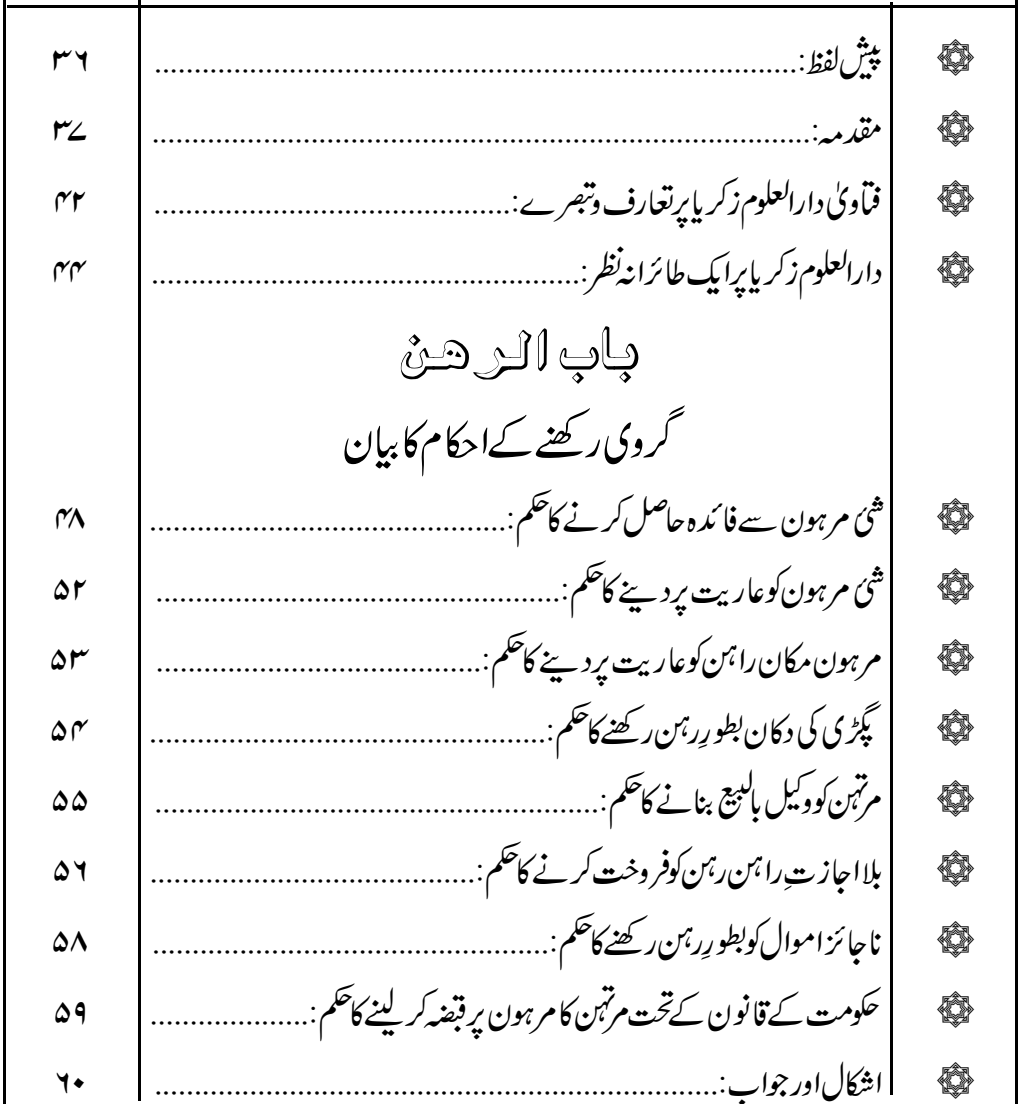 پیش لفظ: ۳۶
مقدمہ: ۳۷
فتاویٰ دارالعلوم زکریا پر تعارف و تبصرے: ۴۲
دارالعلوم زکریا پر ایک طائرانہ نظر: ۴۴
باب الرهن
گروی رکھنے کے احکام کا بیان
شئ مرہون سے فائدہ حاصل کرنے کا حکم: ۴۸
شئ مرہون کو عاریت پر دینے کا حکم: ۵۲
مرہون مکان راہن کو عاریت پر دینے کا حکم: ۵۳
پگڑی کی دکان بطورِ رہن رکھنے کا حکم: ۵۴
مرتہن کو وکیل بالبیع بنانے کا حکم: ۵۵
بلا اجازتِ راہن رہن کو فروخت کرنے کا حکم: ۵۶
ناجائز اموال کو بطورِ رہن رکھنے کا حکم: ۵۸
حکومت کے قانون کے تحت مرتہن کا مرہون پر قبضہ کر لینے کا حکم: ۵۹
اشکال اور جواب: ۶۰